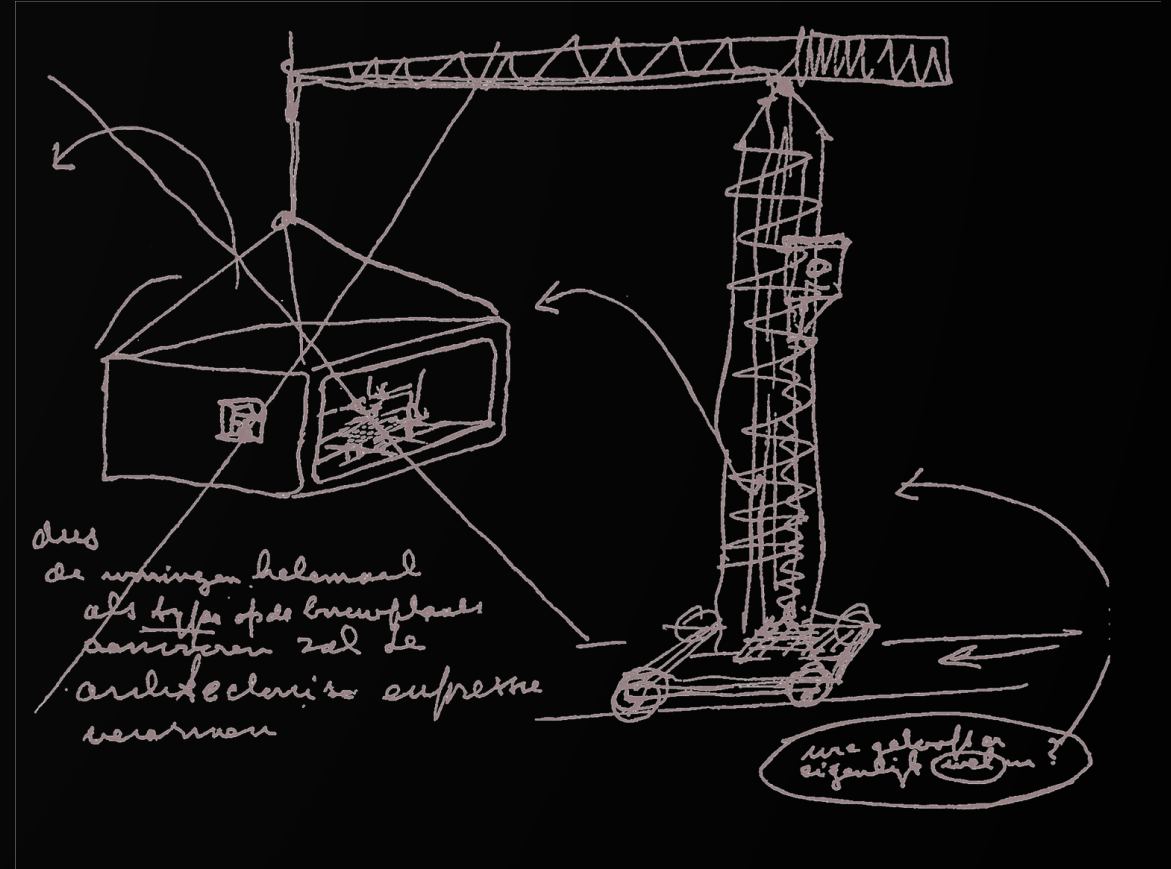 dus
de woningen helemaal
als type op de bouwplaats
aanvoeren zal de
architectonise expressie
verarmen
wie gelooft er
eigenlijk wel in ?